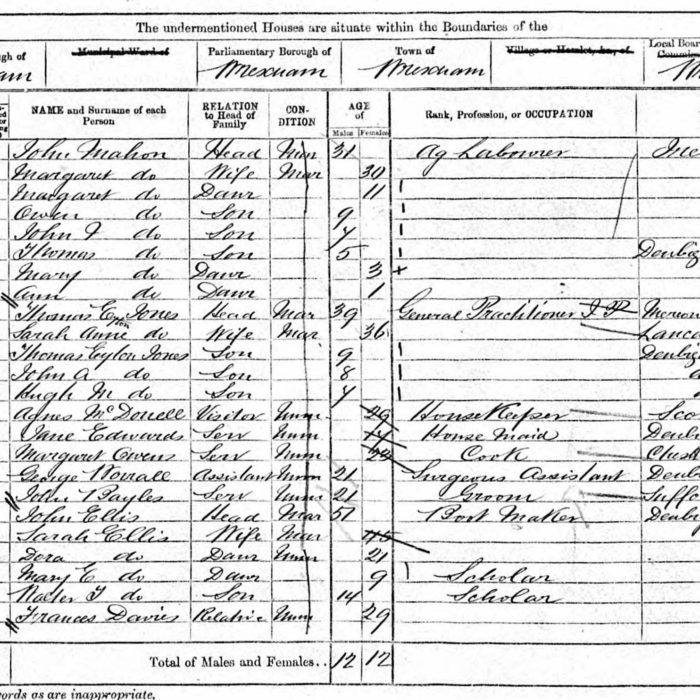 The undermentioned Houses are situate within the Boundaries of the
gh of Municipal Ward of Parliamentary Borough of Town of Village or Hamlet, &c., of Local Board
am Wrexham Wrexham W
NAME and Surname of each Person RELATION to Head of Family CON-DITION AGE of Males Females Rank, Profession, or OCCUPATION
John Mahon Head 31 Ag Labourer
Margaret do Wife Mar 30
Margaret do Daur 11
Owen do Son 9
John do Son
Thomas do Son 5 Denbig
Mary do Daur 3
Ann do Daur 1
Thomas Eyton Jones Head Mar 39 General Practitioner
Sarah Anne do Wife Mar 36 Lanca
Thomas Eyton Jones Son 9 Denbig
John A do Son 8
Hugh M do Son
Agnes McDonell Visitor Unm 29 House Keeper Sco
Jane Edwards Serv Unm House Maid Denb
Margaret Owens Serv Unm 23 Cook
George Assistant Unm 21 Surgeons Assistant Denb
John Bayles Serv Unm 21 Groom Suff
John Ellis Head Mar 51 Boot Maker Denb
Sarah Ellis Wife Mar 45
Dora do Daur Unm 21
Mary E do Daur 9 Scholar
Walter T do Son 14 Scholar
Frances Davies Relative Unm 29
Total of Males and Females.. 12 12
ords as are inappropriate.